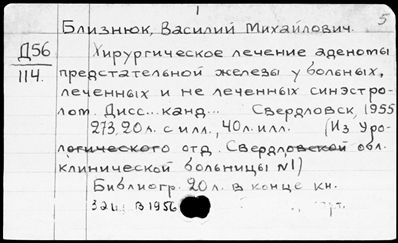 5
Близнюк, Василий Михайлович.
Д56
114.
Хирургическое лечение аденомы
предстательной железы у больных,
леченных и не леченных синэстро-
лом. Дисс... канд... Свердловск, 1955
273, 20 л. с илл., 40 л. илл. (Из Уро-
логического отд. Свердловской обл.
клинической больницы №1)
Библиогр. 20 л. в конце кн.
В 1956